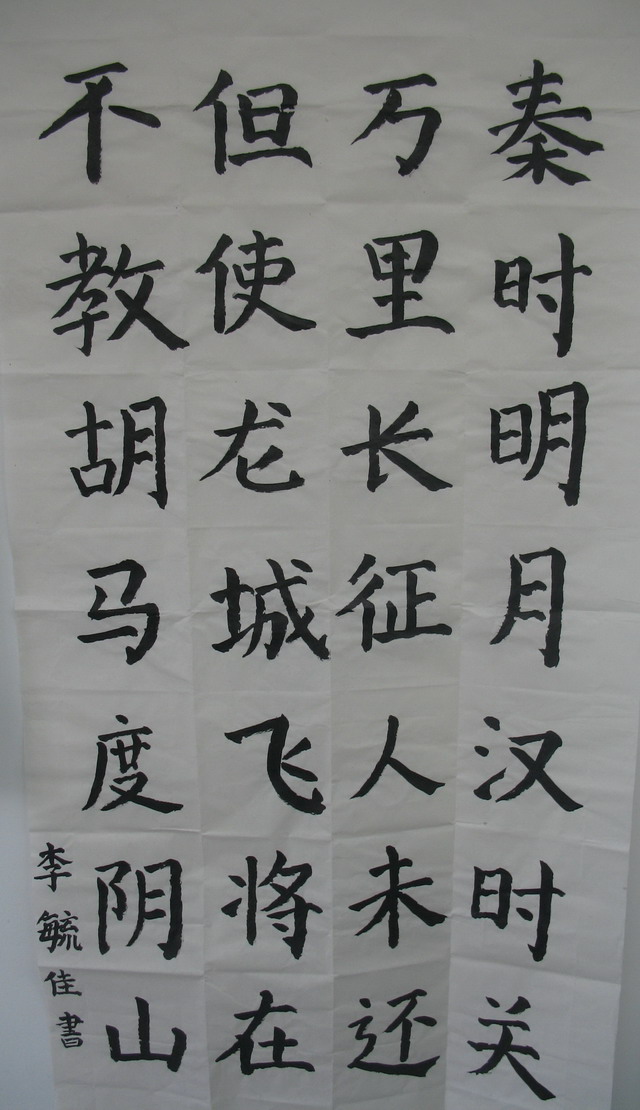 秦时明月汉时关
万里长征人未还
但使龙城飞将在
不教胡马度阴山
李毓佳書